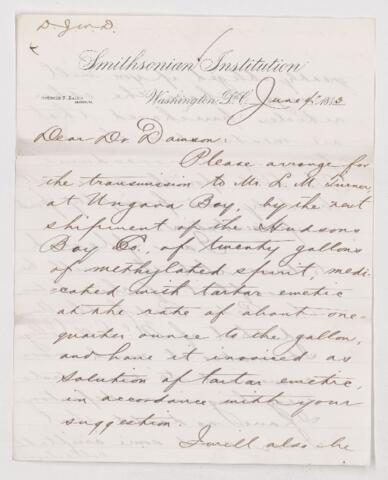 Smithsonian Institution
Spencer F. Baird
Washington, D.C. June 1883
Dear Dr Dawson:
Please arrange for
the transmission to Mr. L. M. Turner,
at Ungava Bay, by the next
shipment of the Hudsons
Bay Co. of twenty gallons
of methylated spirit, medi-
cated with tartar emetic
at the rate of about one-
quarter ounce to the gallon,
and have it invoiced as
solution of tartar emetic,
in accordance with your
suggestion.
I will also be